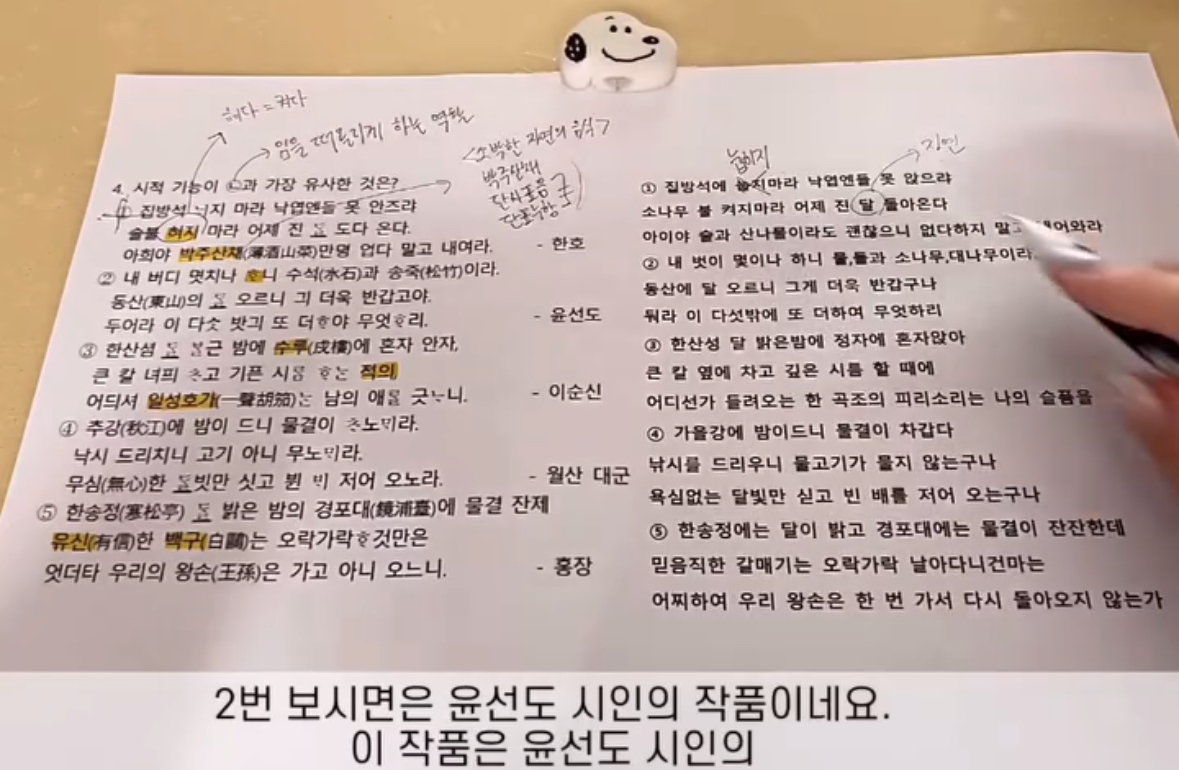 혀다 = 켜다
임을 떠올리게 하는 역할
<소박한 자연의 음식>
박주산채
단사표음
단표누항
4. 시적 기능이 ㉡과 가장 유사한 것은?
① 집방석 지 마라 낙엽엔들 못 안즈랴
솔불 혀지 마라 어제 진 도다 온다.
아희야 박주산채(薄酒山菜)만뎡 업다 말고 내여라. - 한호
② 내 버디 몃치나 ᄒᆞ니 수석(水石)과 송죽(松竹)이라.
동산(東山)의 ᄃᆞᆯ 오르니 긔 더욱 반갑고야.
두어라 이 다ᄉᆞᆺ 밧긔 또 더ᄒᆞ야 무엇ᄒᆞ리. - 윤선도
③ 한산셤 ᄃᆞᆯ ᄇᆞᆰ근 밤에 수루(戍樓)에 혼자 안자,
큰 칼 녀픠 ᄎᆞ고 기픈 시름 ᄒᆞ는 적의
어듸셔 일성호가(一聲胡笳)는 남의 애를 긋ᄂᆞ니. - 이순신
④ 추강(秋江)에 밤이 드니 물결이 ᄎᆞ노ᄆᆡ라.
낙시 드리치니 고기 아니 무노ᄆᆡ라.
무심(無心)한 ᄃᆞᆯ빗만 싯고 뷘 ᄇᆡ 저어 오노라. - 월산 대군
⑤ 한송정(寒松亭) ᄃᆞᆯ 밝은 밤의 경포대(鏡浦臺)에 물결 잔제
유신(有信)한 백구(白鷗)는 오락가락 ᄒᆞ것만은
엇더타 우리의 왕손(王孫)은 가고 아니 오느니. - 홍장
눕히지
자연
① 집방석에 지마라 낙엽엔들 못 앉으랴
소나무 불 켜지마라 어제 진 달 돌아온다
아이야 술과 산나물이라도 괜찮으니 없다하지 말고 내어와라
② 내 벗이 몇이나 하니 물,돌과 소나무,대나무이라
동산에 달 오르니 그게 더욱 반갑구나
둬라 이 다섯밖에 또 더하여 무엇하리
③ 한산성 달 밝은밤에 정자에 혼자앉아
큰 칼 옆에 차고 깊은 시름 할 때에
어디선가 들려오는 한 곡조의 피리소리는 나의 슬픔을
④ 가을강에 밤이드니 물결이 차갑다
낚시를 드리우니 물고기가 물지 않는구나
욕심없는 달빛만 싣고 빈 배를 저어 오는구나
⑤ 한송정에는 달이 밝고 경포대에는 물결이 잔잔한데
믿음직한 갈매기는 오락가락 날아다니건마는
어찌하여 우리 왕손은 한 번 가서 다시 돌아오지 않는가
2번 보시면은 윤선도 시인의 작품이네요.
이 작품은 윤선도 시인의